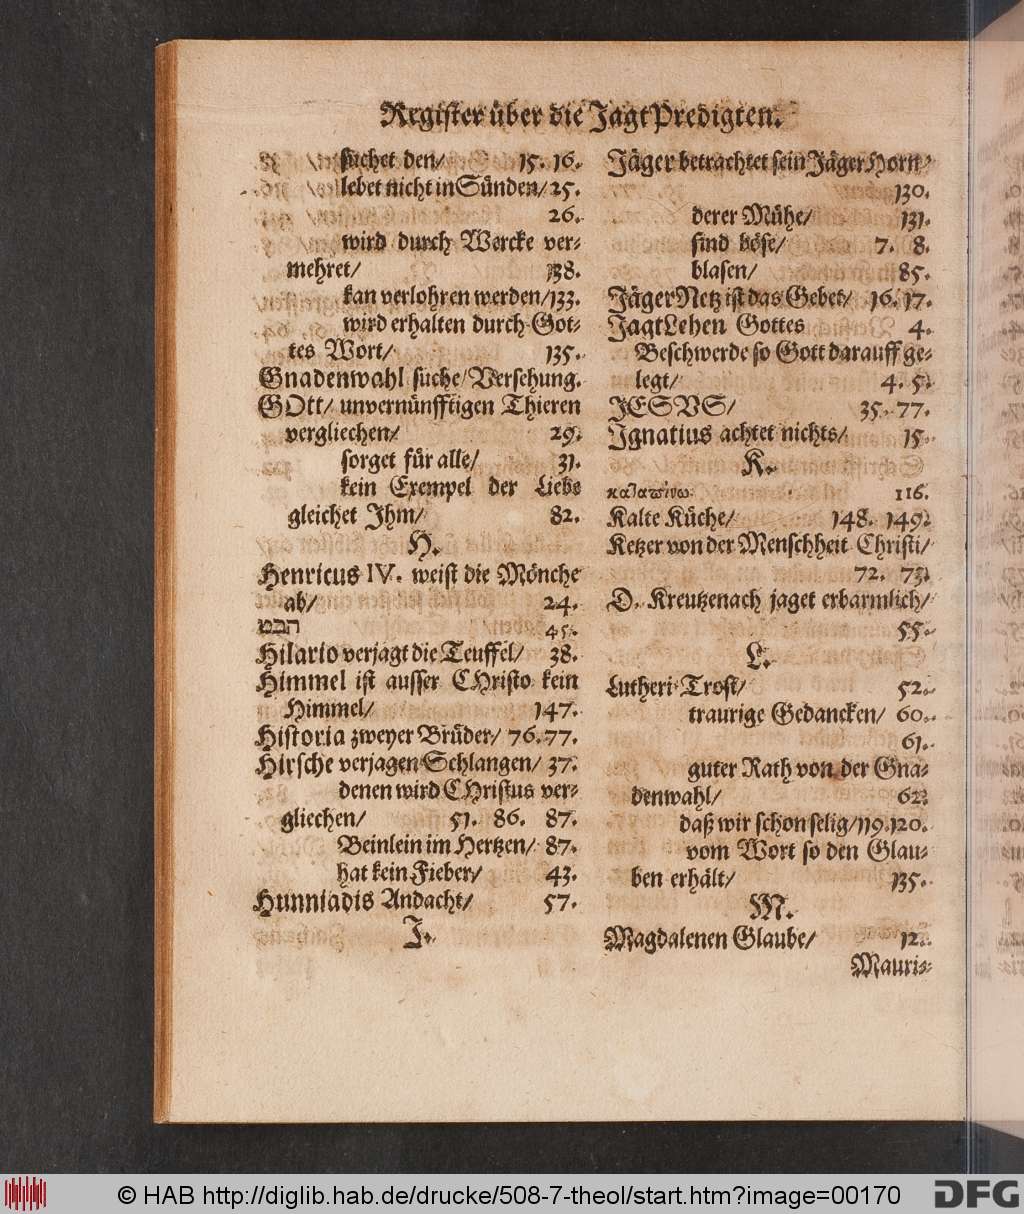 Register über die JagtPredigten.
suchet den/ 15. 16.
lebet nicht in Sünden/ 25.
26.
wird durch Wercke ver-
mehret/ 138.
kan verlohren werden/ 133.
wird erhalten durch Got-
tes Wort/ 135.
Gnadenwahl suche/ Versehung.
GOtt/ unvernünfftigen Thieren
vergliechen/ 29.
sorget für alle/ 31.
kein Exempel der Liebe
gleichet Ihm/ 82.
H.
Henricus IV. weist die Mönche
ab/ 24.
הבט 45.
Hilario verjagt die Teuffel/ 38.
Himmel ist ausser CHristo kein
Himmel/ 147.
Historia zweyer Brüder/ 76. 77.
Hirsche verjagen Schlangen/ 37.
denen wird CHristus ver-
gliechen/ 51. 86. 87.
Beinlein im Hertzen/ 87.
hat kein Fieber/ 43.
Hunniadis Andacht/ 57.
J.
Jäger betrachtet sein JägerHorn-
130.
derer Mühe/ 131.
sind böse/ 7. 8.
blasen/ 85.
JägerNetz ist das Gebet/ 16. 17.
JagtLehen Gottes 4.
Beschwerde so Gott darauff ge-
legt/ 4. 5.
JESVS/ 35. 77.
Ignatius achtet nichts/ 15.
K.
116.
Kalte Küche/ 148. 149.
Ketzer von der Menschheit Christi/
72. 73.
D. Kreutzenach jaget erbarmlich/
55.
L.
Lutheri Trost/ 52.
traurige Gedancken/ 60.
61.
guter Rath von der Gna-
denwahl/ 62.
daß wir schon selig/ 119. 120.
vom Wort so den Glau-
ben erhält/ 135.
M.
Magdalenen Glaube/ 12.
Mauri-
© HAB http://diglib.hab.de/drucke/508-7-theol/start.htm?image=00170
DFG